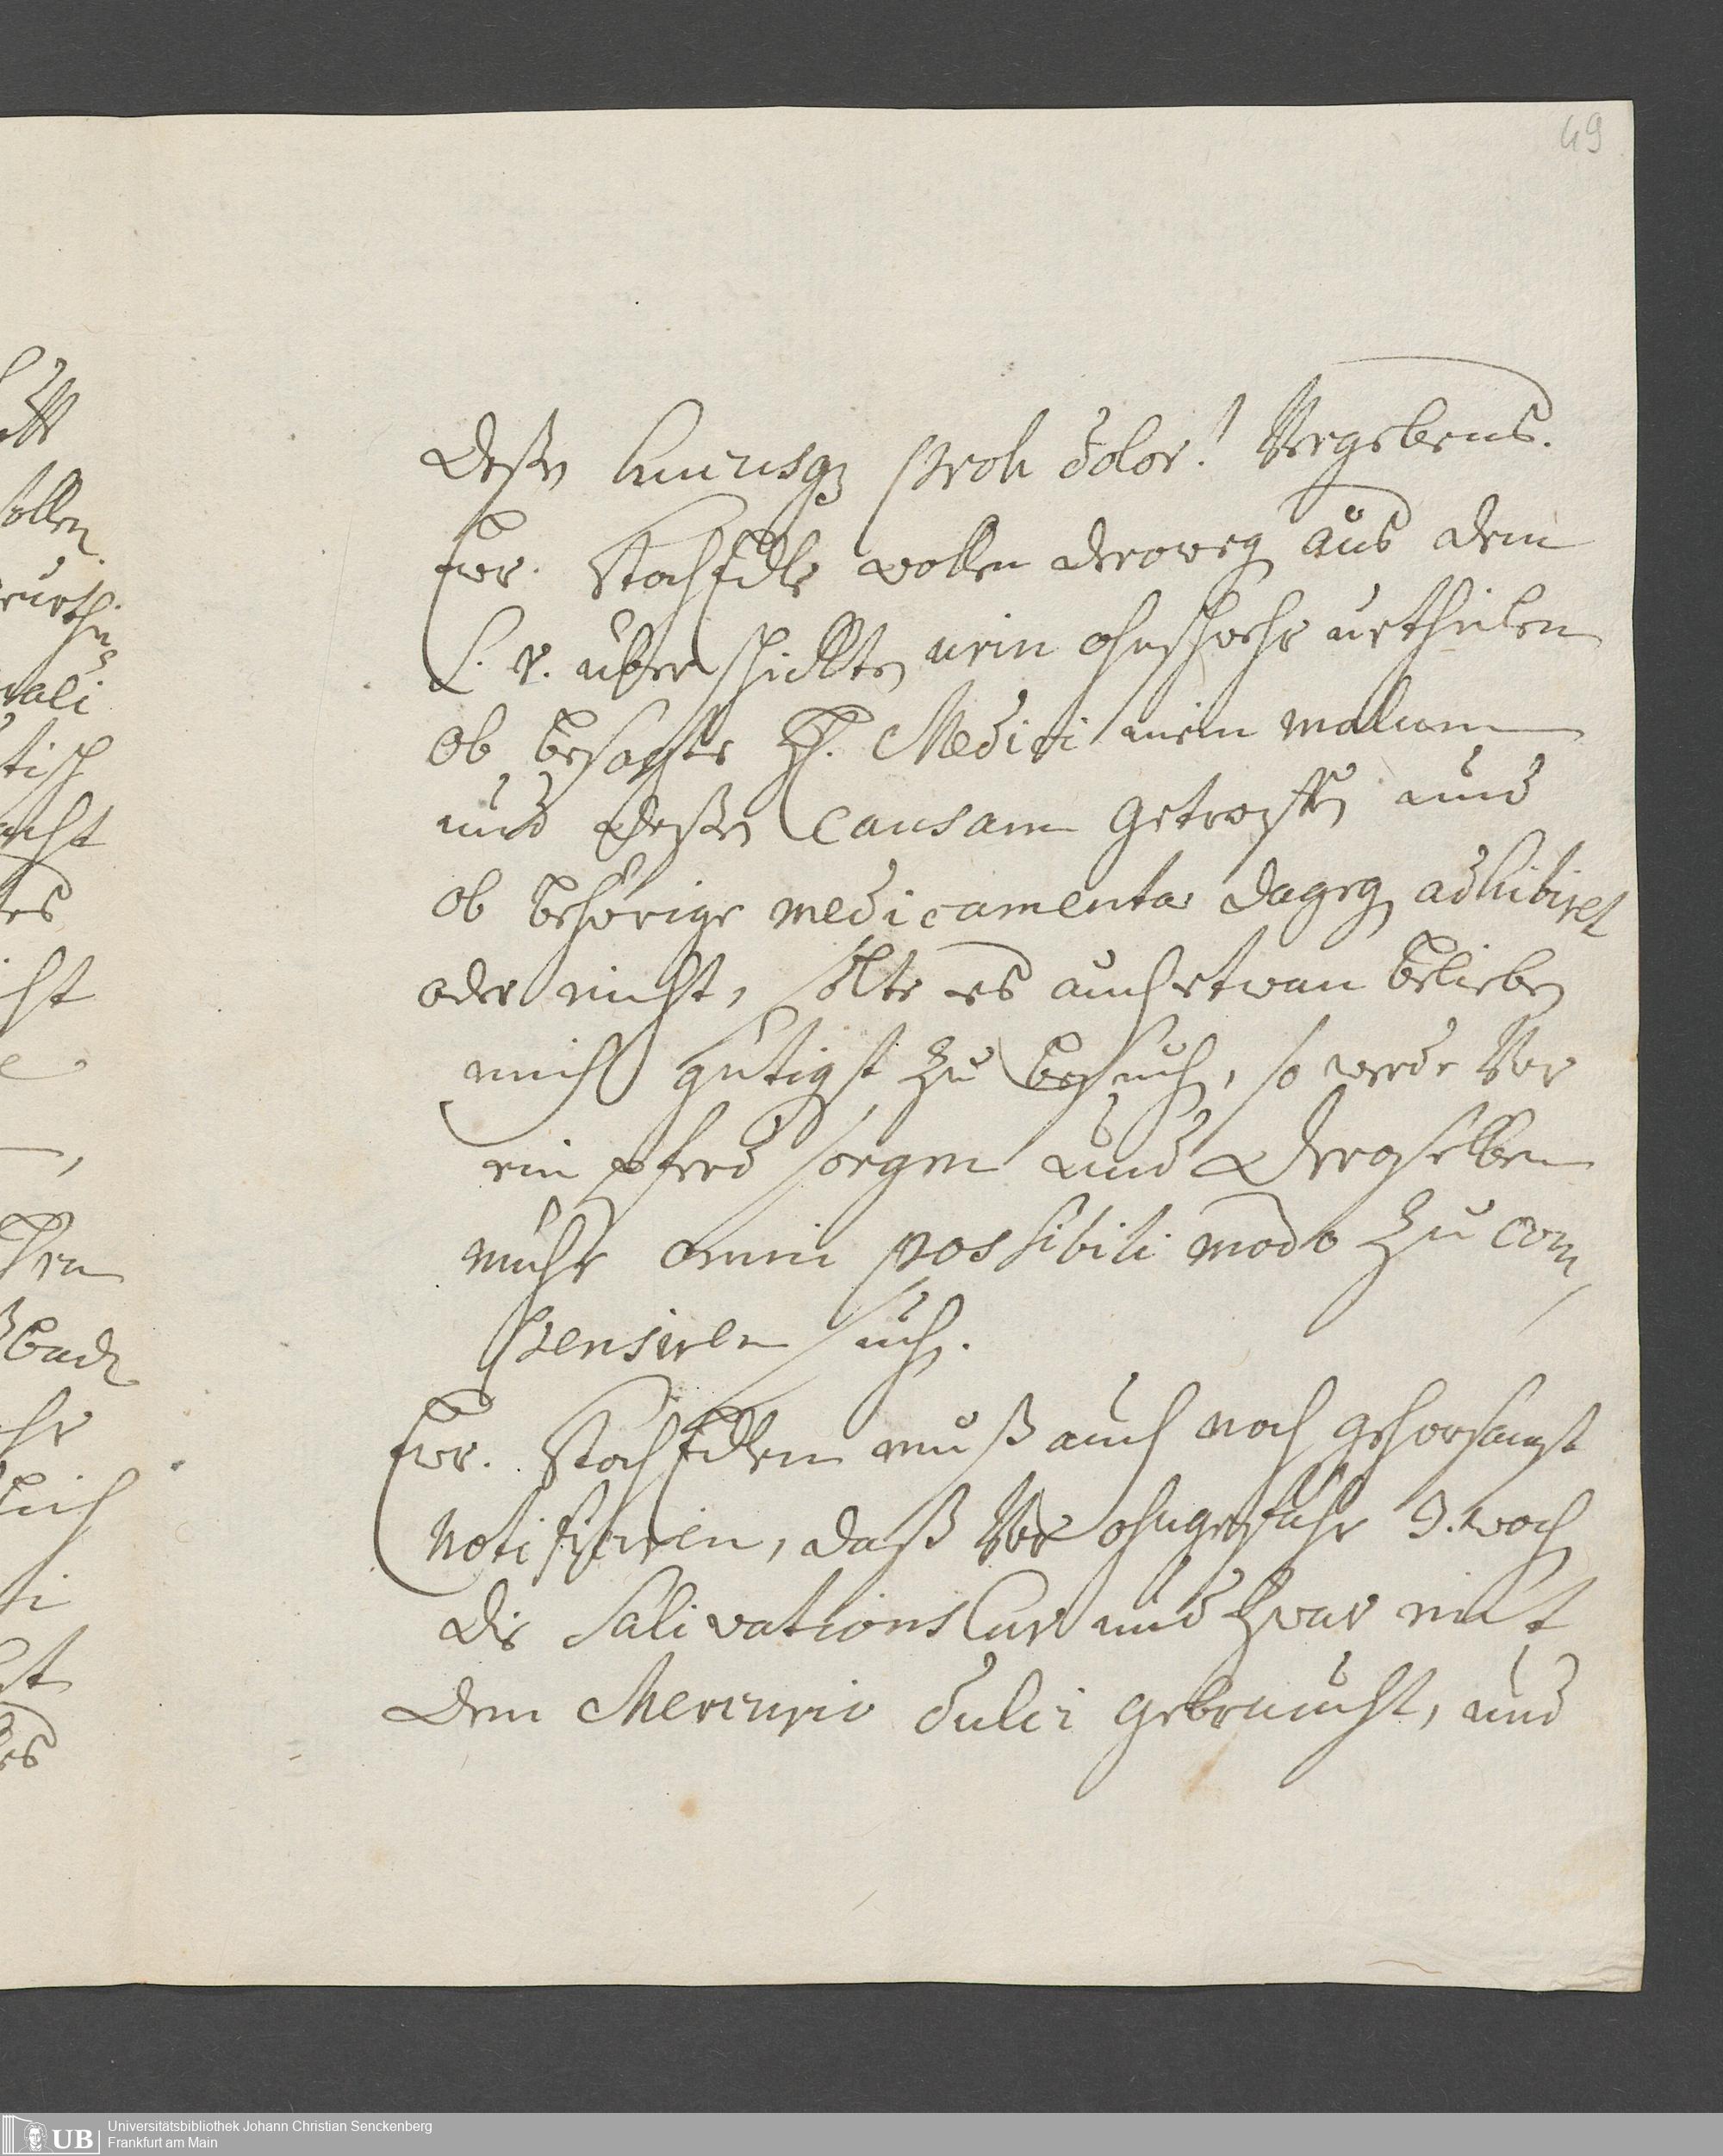 49
deßen hucusq; proh dolor! Vergebens.
Ewr. HochEdle wollen deroweg aus dem
S. v. überschickten urin ohnschwehr urtheilen
ob besagte HH. Medici mein malum
und deßen causam getroffen und
ob behörige medicamenta dagegen adhibiret
oder nicht, solte es auch etwan belieben
mich gütigst zu besuchen, so werde vor
ein pferd sorgen und Deroselben
mühe omni possibili modo zu com
pensiren suchen.
Ewr. HochEdlen muß auch noch gehorsamst
notificiren, daß vor ohngefähr 9. wochen
die Salivations Cur und zwar mit
dem Mercurio dulci gebraucht, und
sollen
Universitätsbibliothek Johann Christian Senckenberg
Frankfurt am Main
UB